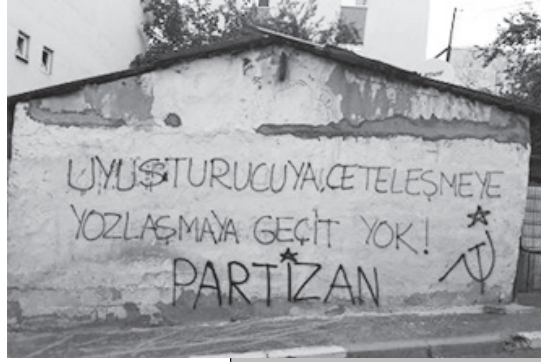 UYUŞTURUCUYA, ÇETELEŞMEYE
YOZLAŞMAYA GEÇİT YOK!
PARTİZAN